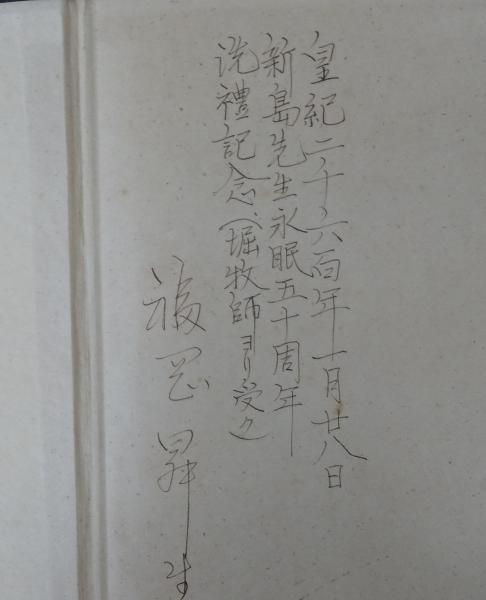 皇紀二千六百年一月廿八日
新島先生永眠五十周年
洗禮記念（堀牧師ヨリ受ク）
福岡昇